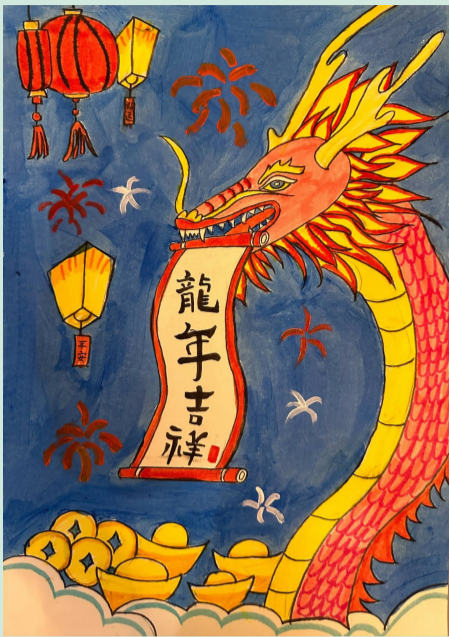 龍年吉祥
平安